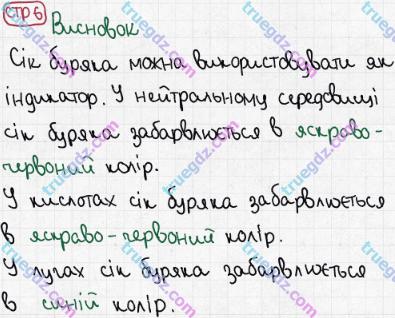 стр 6
Висновок
Сік буряка можна використовувати як
індикатор. У нейтральному середовищі
сік буряка забарвлюється в яскраво-
червоний колір.
У кислотах сік буряка забарвлюється
в яскраво-червоний колір.
У лугах сік буряка забарвлюється
в синій колір.
truegdz.com